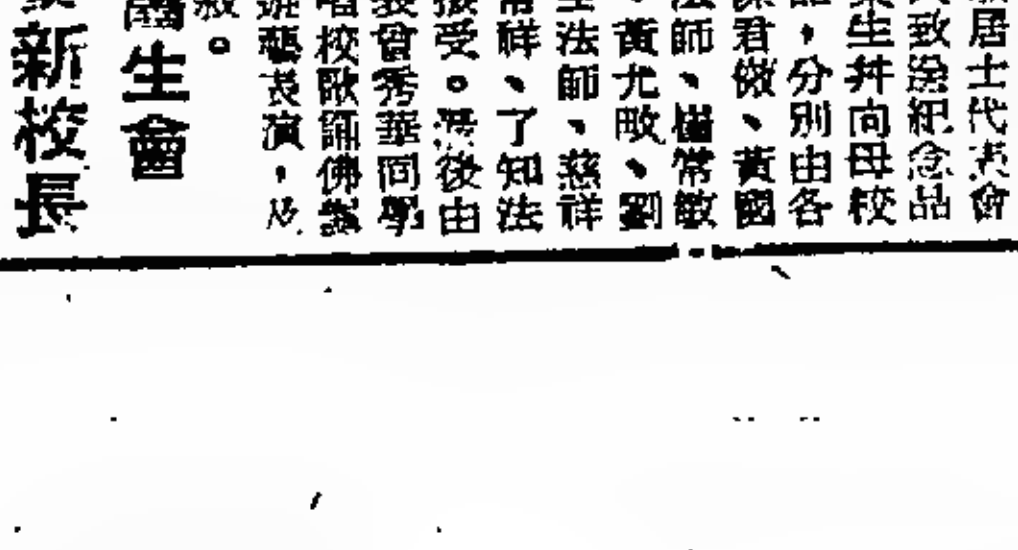 居士代表會
致送紀念品
業生并向母校
品，分別由各
君微、黃國
法師、常敏
、黃尤畋、劉
法師、慈祥
常祥、了知法
接受。最後由
表曾秀華同學
唱校歌誦佛
遊藝表演，及
敍。
生會
新校長